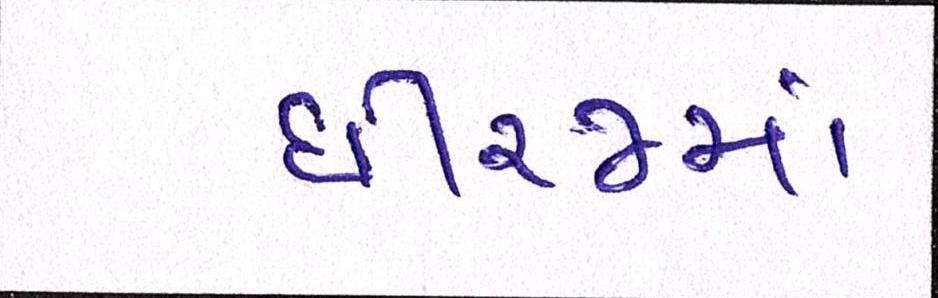 ધીરજમાં